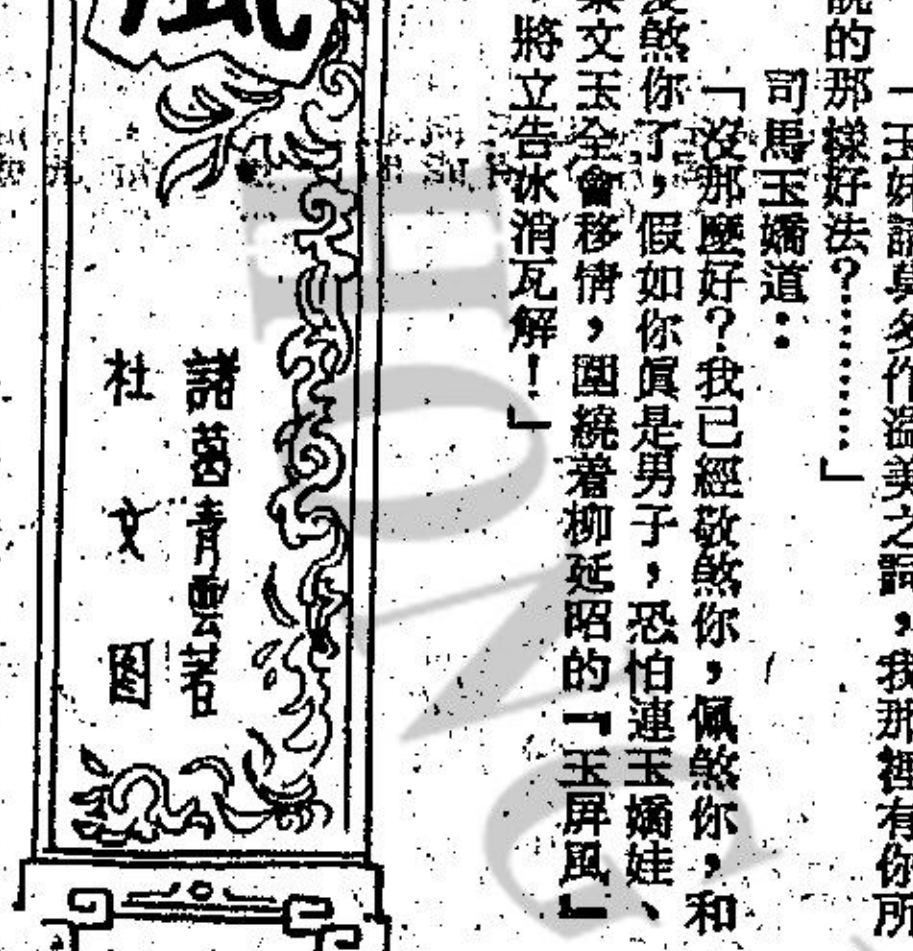 「玉妹請莫多作溢美之詞，我那裡有你所
說的那樣好法？………」
司馬玉嬌道：
「沒那麼好？我已經敬煞你，佩煞你，和
愛煞你了，假如你真是男子，恐怕連玉嬌娃、
文玉全會移情，圍繞着柳延昭的『玉屏風』
，將立告冰消瓦解！」
風
諸葛青雲著
杜文图
HONG